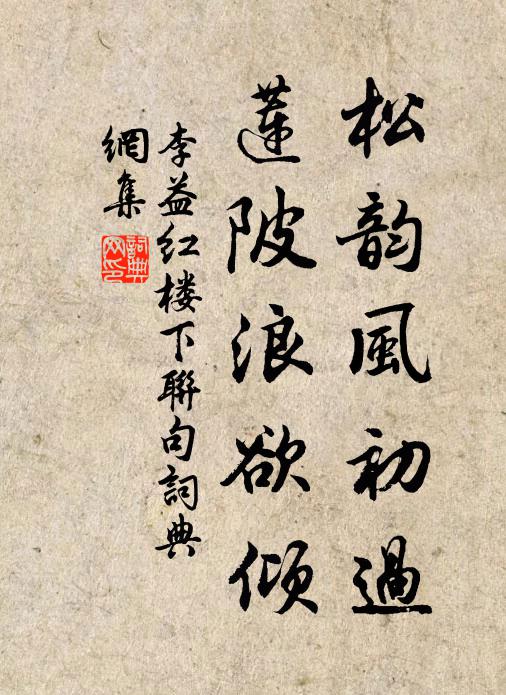 松韵風初過
蓮陂浪欲倾
李益红楼下聯句詞典
網集
詞典網印